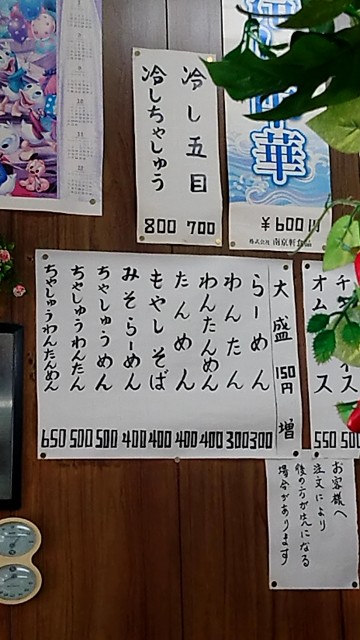 冷し五目 700
冷しちゃしゅう 800
中華
￥600円
株式会社 南京軒食品
大盛 150円 増
らーめん 300
わんたん 300
わんたんめん 400
たんめん 400
もやしそば 400
みそらーめん 400
ちゃしゅうめん 500
ちゃしゅうわんたん 500
ちゃしゅうわんたんめん 650
ス 500
オム ス 550
お客様へ
注文により
後の方が先になる
場合があります